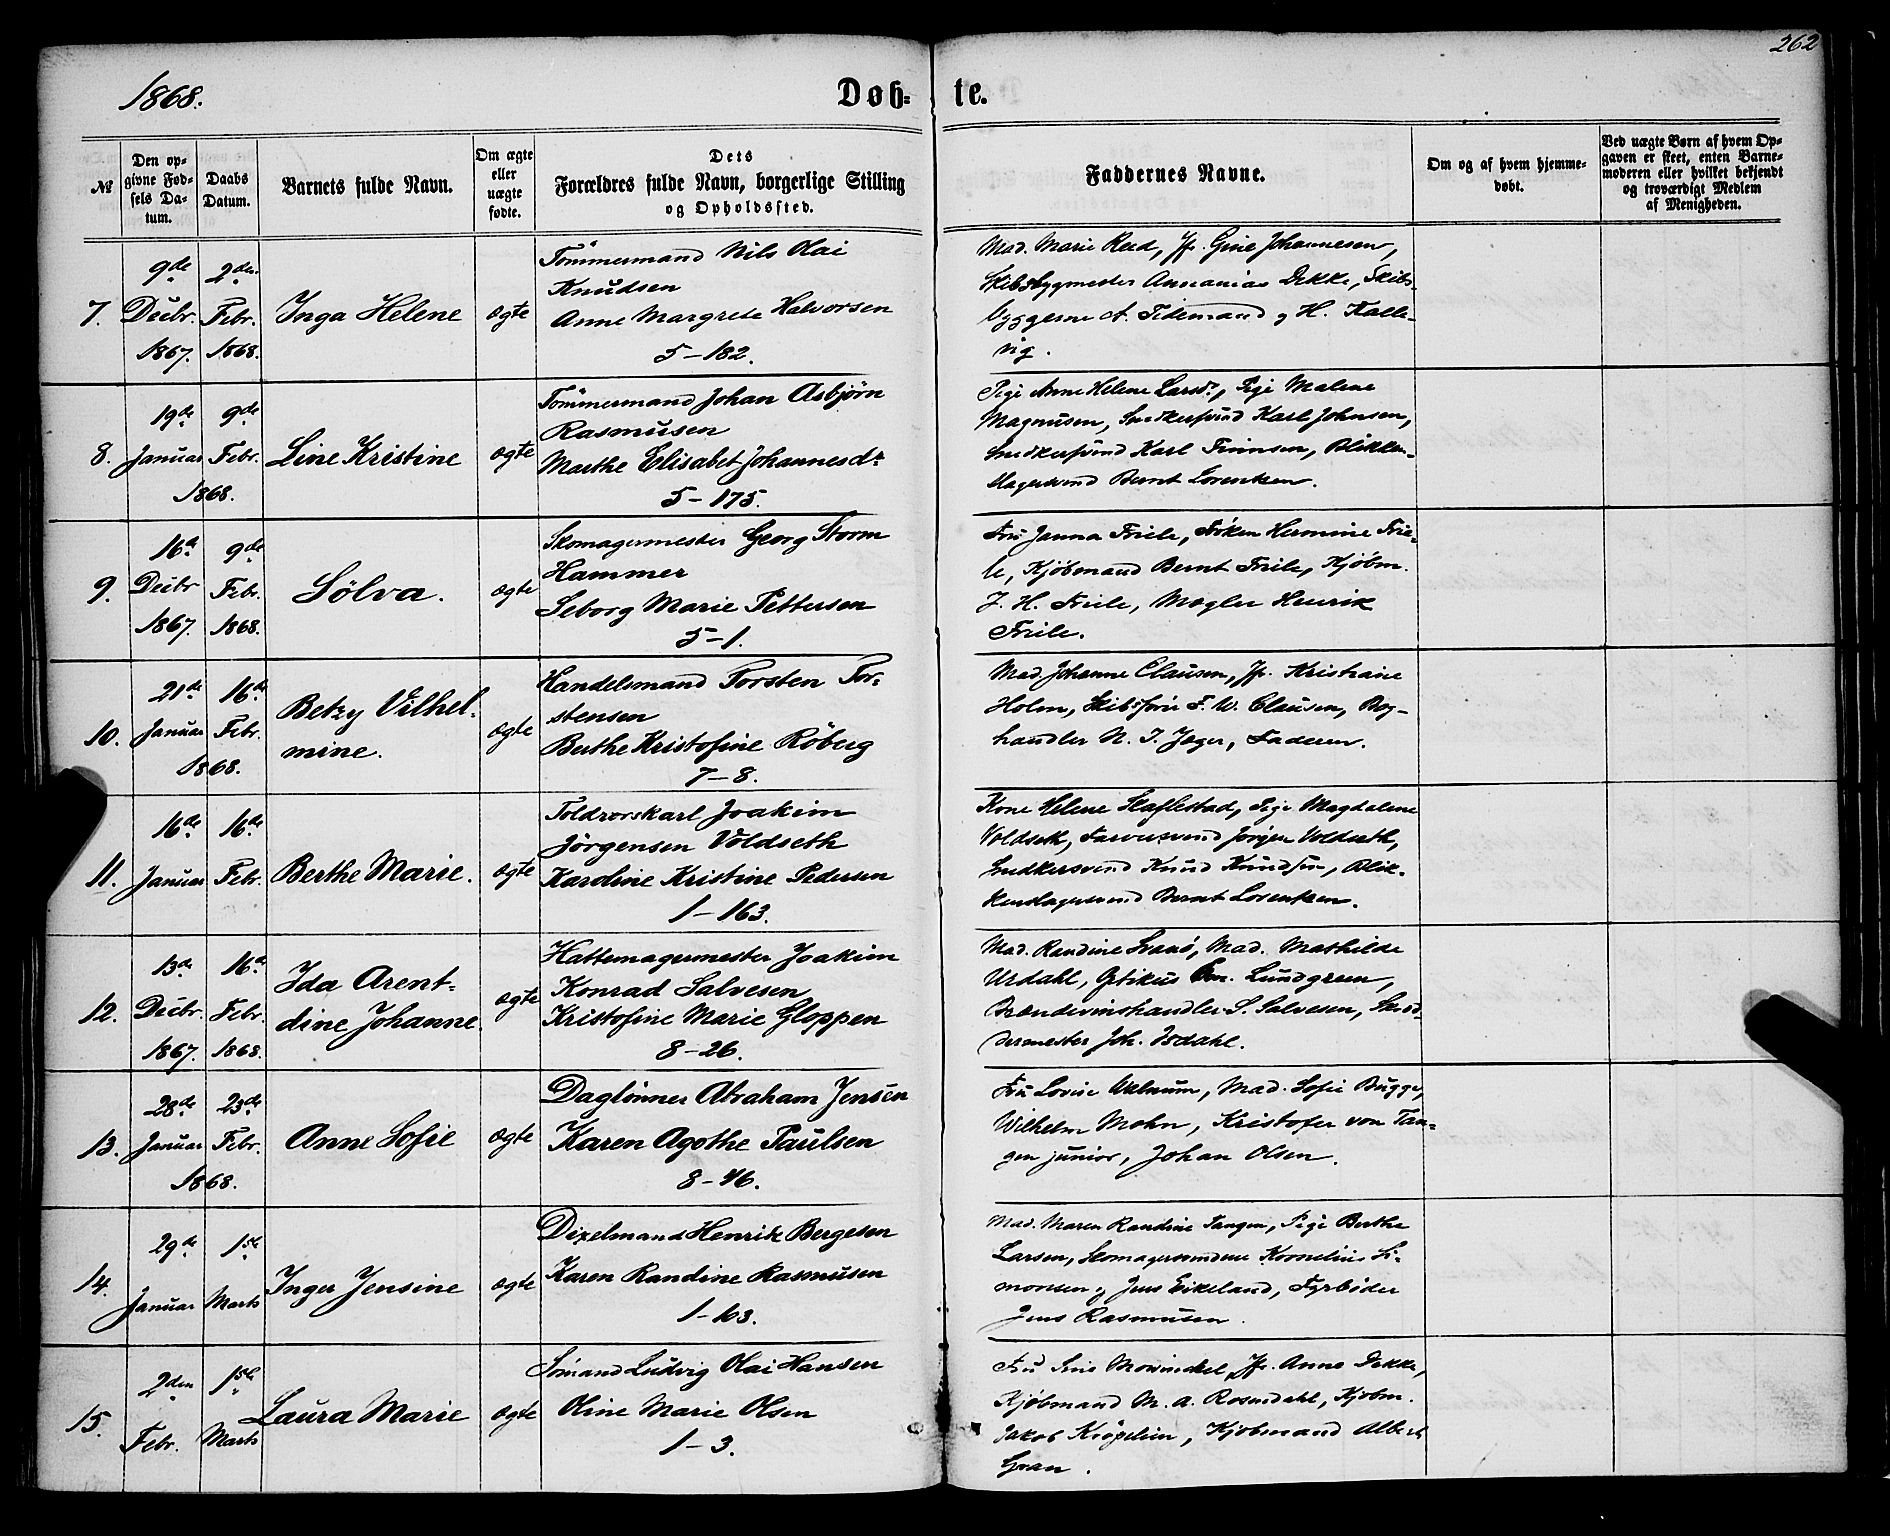 262
1868.
Døb-te.
№
Den op-
givne Fød-
sels Da-
tum.
Daabs
Datum.
Barnets fulde Navn.
Om ægte
eller
uægte
fødte.
Dets
Forældres fulde Navn, borgerlige Stilling
og Opholdssted.
Faddernes Navne.
Om og af hvem hjemme-
døbt.
Ved uægte Børn af hvem Op-
gaven er skeet, enten Barne-
moderen eller hvilket bekjendt
og troværdigt Medlem
af Menigheden.
7.
9de
Decbr.
1867.
2den
Febr.
1868.
Inga Helene
ægte
Tömmermand Nils Olai
Knudsen
Anne Margrete Halvorsen
5-182.
Mad. Marie Reed, Jfr. Gine Johannesen,
Skibsbygmester Annanias Dekke, Skibs-
byggerne A. Tidemand og H. Kalle-
vig.
8.
19de
Januar
9de
Febr.
1868.
Line Kristine
ægte
Tömmermand Johan Asbjørn
Rasmusen
Marthe Elisabet Johannesdr
5-175.
Pige Anne Helene Larsdr, Pige Malene
Magnusen, Snedkersvend Karl Johnsen,
Snedkersvend Karl Finnsen, Blikken-
slagersvend Bernt Lorentzen.
9.
16de
Decbr
1867.
9de
Febr.
1868.
Sölva.
ægte
Skomagermester Georg Storm
Hammer
Seborg Marie Pettersen
5-1.
Fru Janna Friele, Fröken Hermine Frie-
le, Kjöbmand Bernt Friele, Kjöbm.
J. H. Friele, Mægler Henrik
Friele.
10.
21de
Januar
16de
Febr.
1868.
Betzy Vilhel-
mine.
ægte
Handelsmand Torsten Tor-
stensen
Berthe Kristofine Röberg
7-8.
Mad. Johanne Clausen, Jfr. Kristiane
Holm, Skibsförer F. W. Clausen, Bog-
handler N. J. Jæger, Faderen.
11.
16de
Januar
16de
Febr.
Berthe Marie.
ægte
Toldrorskarl Joakim
Jörgensen Voldseth
Karoline Kristine Pedersen
1-163.
Kone Helene Haflestad, Pige Magdalene
Voldseth, Farversvend Jörgen Voldseth,
Snedkersvend Knud Knudsen, Blik-
kenslagersvend Bernt Lorentzen.
12.
13de
Decbr.
1867.
16de
Febr.
1868.
Ida Arent-
dine Johanne
ægte
Hattemagermester Joakim
Konrad Salvesen
Kristofine Marie Gloppen
8-26.
Mad. Randine Svanö, Mad. Mathilde
Urdahl, Optikus Em. Lundgreen,
Brændevinshandler S. Salvesen, Skræd-
dermester Joh. Isdahl.
13.
28de
Januar
23de
Febr.
1868.
Anne Sofie
ægte
Daglönner Abraham Jensen
Karen Agothe Paulsen
8-46.
Fru Lovise Walnum, Mad. Sofie Bugge,
Wilhelm Mohn, Kristofer von Tan-
gen junior, Johan Olsen.
14.
29de
Januar
1ste
Marts
Inger Jensine
ægte
Dixelmand Henrik Bergesen
Karen Randine Rasmusen
1-63.
Mad. Maren Randine Tangen, Pige Berthe
Larsen, Skomagersvendene Kornelius Si-
monsen og Jens Eikeland, Fyrböder
Jens Rasmusen.
15.
2den
Febr.
1ste
Marts
Laura Marie
ægte
Sömand Ludvig Olai Hansen
Oline Marie Olsen
1-3.
Fru Mowinckel, Jfr. Anne Dekke,
Kjöbmand M. A. Rosendahl, Kjöbm.
Jakob Kröpelien, Kjöbmand Albert
Gran.